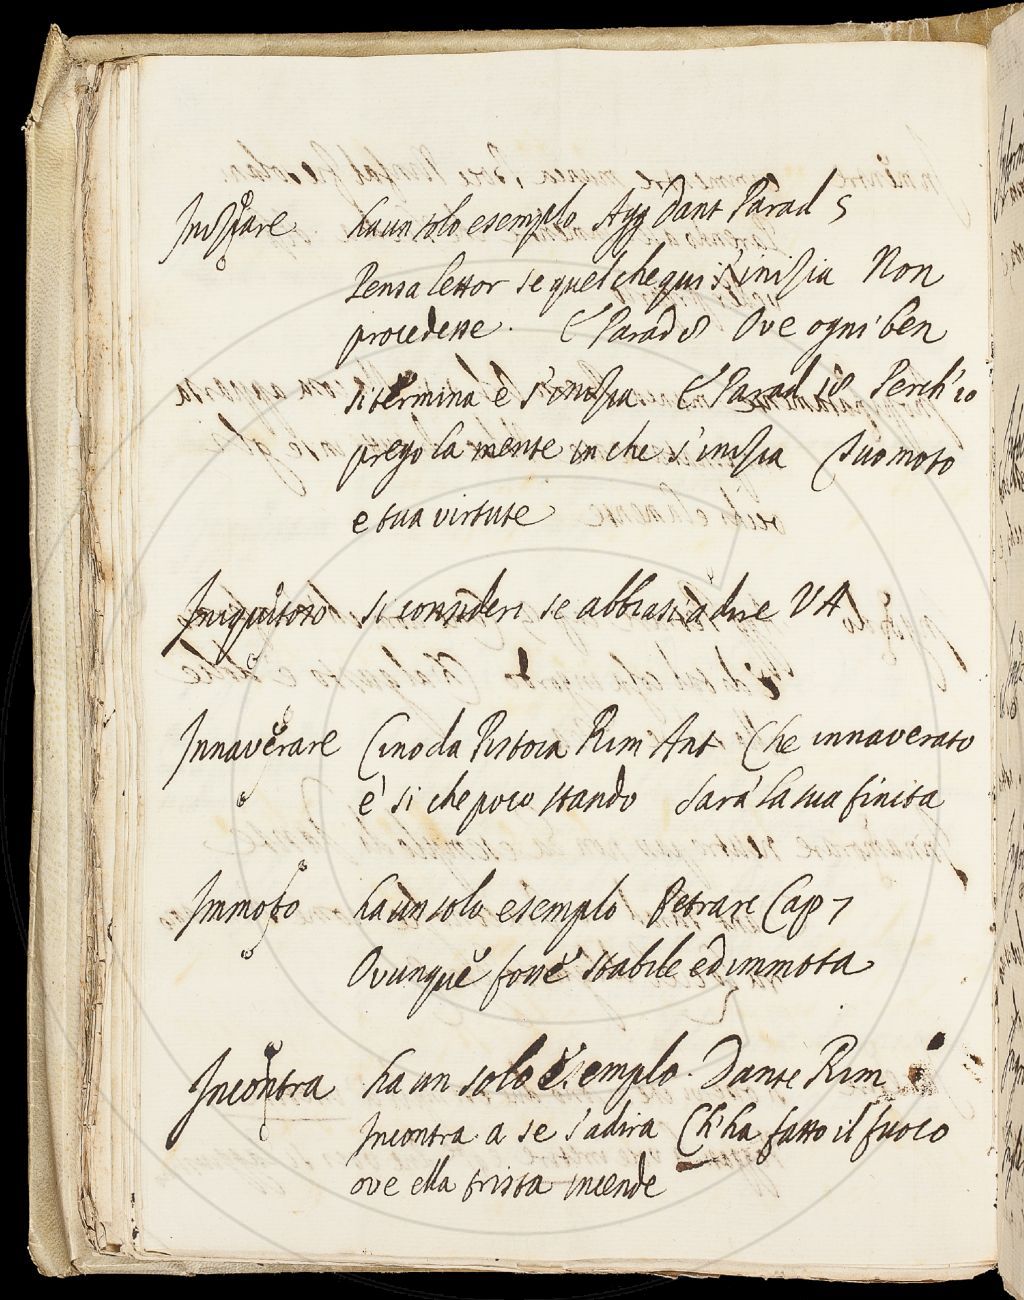 Inizziare ha un solo esemplo Agg Dant Parad 5
Pensa lettor se quel che qui s'inizia Non
procedesse. E Parad 8 Ove ogni ben
si termina e s'inizia E Parad 18 Perch'io
prego la mente in che s'inizia Tuo moto
e tua virtute
Iniquitoso si consideri se abbiasi a dire V A
Innaverare Cino da Pistoia Rim Ant Che innaverato
e' si che poco stando Sara' la sua finita
Immoto ha un solo esemplo Petrarc Cap 7
Ovunque fosse stabile ed immota
Incontra ha un solo esemplo. Dante Rim
Incontra a se s'adira Ch'ha fatto il fuoco
ove ella trista incende